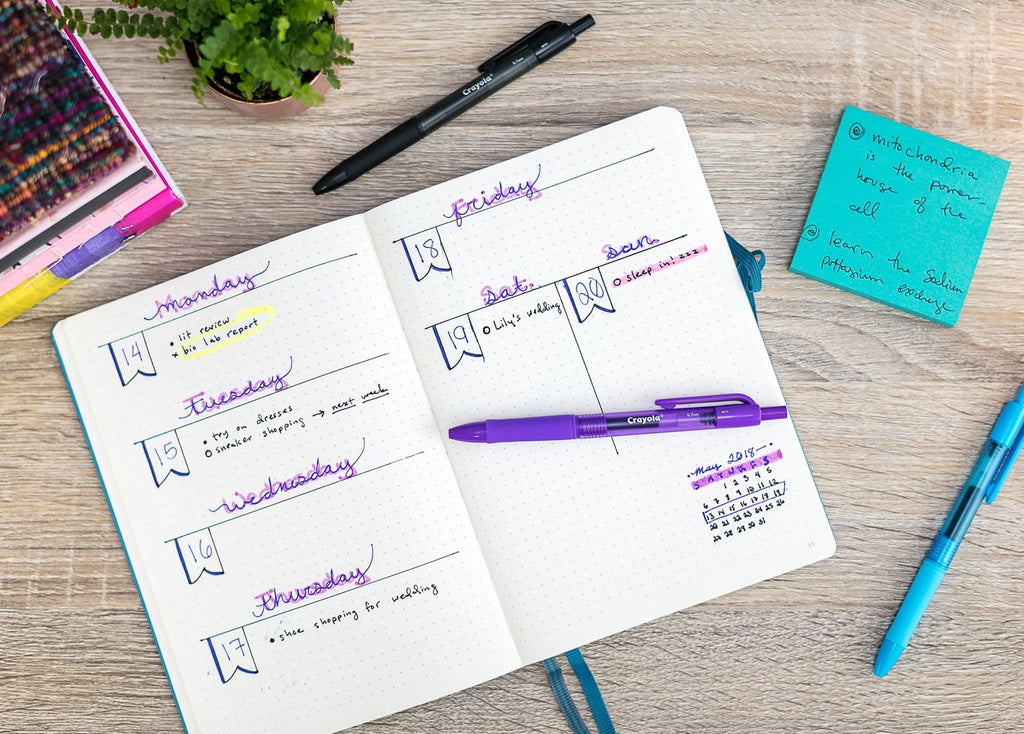 Monday
14
• lit review
x bio lab report
Tuesday
15
• try on dresses
o sneaker shopping → next week
Wednesday
16
Thursday
17
• shoe shopping for wedding
Friday
18
Sat.
19
o Lily's wedding
Sun.
20
o sleep in! zzz
May 2018
S M T W Th F S
1 2 3 4 5
6 7 8 9 10 11 12
13 14 15 16 17 18 19
20 21 22 23 24 25 26
27 28 29 30 31
Crayola
Crayola
mitochondria
is the power-
house of the
cell
learn the Sodium
Pottasium exchange